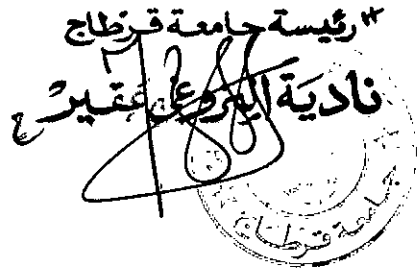 رئيسة جامعة قرطاج
نادية المزوغي عقير
جامعة قرطاج